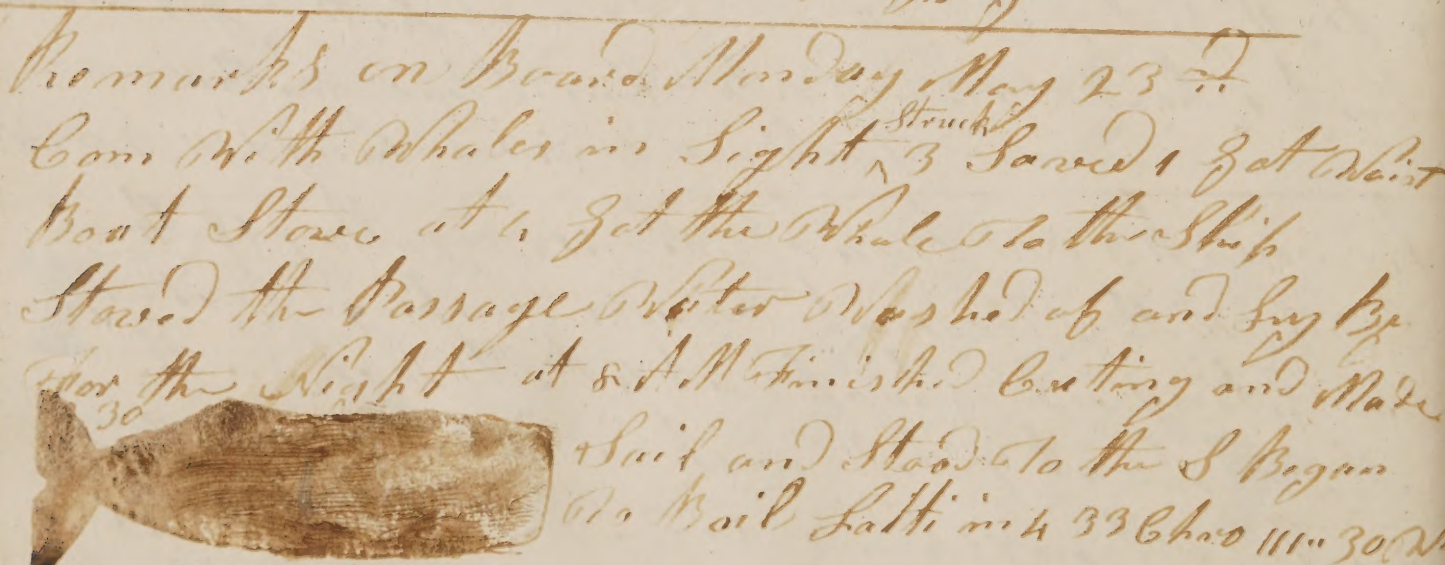 Remarks on Board Monday May 23rd
Com With Whales in Sight ^ Struck 3 Saved 1 Gat Waist
Boat Stove at 4 Gat the Whale To the Ship
Stowd the Passage Water Washed of and Lay By
For the Night at 8 AM Finishd Cutting and Made
30
Sail and Stood To the S Began
To Boil Latti in 4 33 Chro 111" 30 W